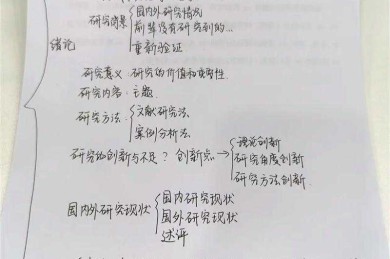 绪论
研究背景
国内外研究情况
前辈没有研究到的...
重新验证
研究意义：研究的价值和重要性.
研究内容：主题.
研究方法：
文献研究法
案例分析法.
研究的创新与不足？创新点→
理论创新
研究角度创新
研究方法创新.
国内外研究现状
国内研究现状
国外研究现状
述评